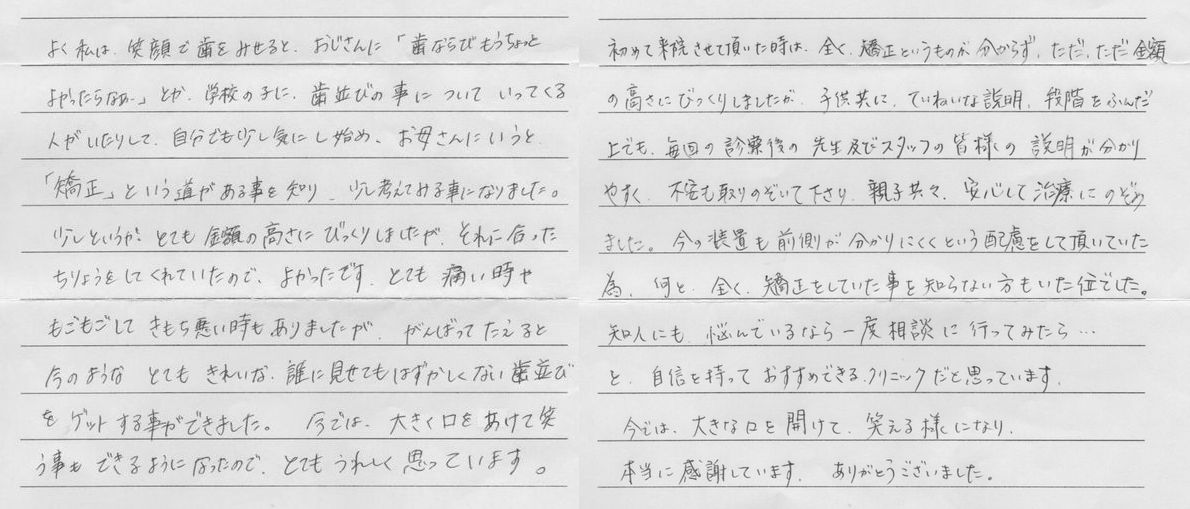 よく私は、笑顔で歯をみせると、おじさんに「歯ならびもうちょっと
よかったらなぁ〜」とか、学校の子に、歯並びの事について いってくる
人がいたりして、自分でも少し気にし始め、お母さんにいうと、
「矯正」という道がある事を知り、少し考えてみる事になりました。
少しというか、とても金額の高さにびっくりしましたが、それに合った
ちりょうをしてくれていたので、よかったです。とても痛い時や
もごもごして きもち悪い時もありましたが、がんばってたえると
今のような とても きれいな、誰に見せてもはずかしくない歯並び
を ゲットする事ができました。 今では、大きく口をあけて笑
う事も できるようになったので、とてもうれしく思っています。
初めて来院させて頂いた時は、全く、矯正というものが分からず、ただ、ただ金額
の高さにびっくりしましたが、子供共に、ていねいな説明、段階をふんだ
上でも、毎回の診療後の先生及びスタッフの皆様の説明が分かり
やすく、不安も取りのぞいて下さり、親子共々、安心して治療にのぞめ
ました。今の装置も前側が分かりにくくという配慮をして頂いていた
為、何と、全く、矯正をしていた事を知らない方もいた位でした。
知人にも、悩んでいるなら一度相談に行ってみたら…
と、自信を持っておすすめできる、クリニックだと思っています。
今では、大きな口を開けて、笑える様になり、
本当に感謝しています。 ありがとうございました。